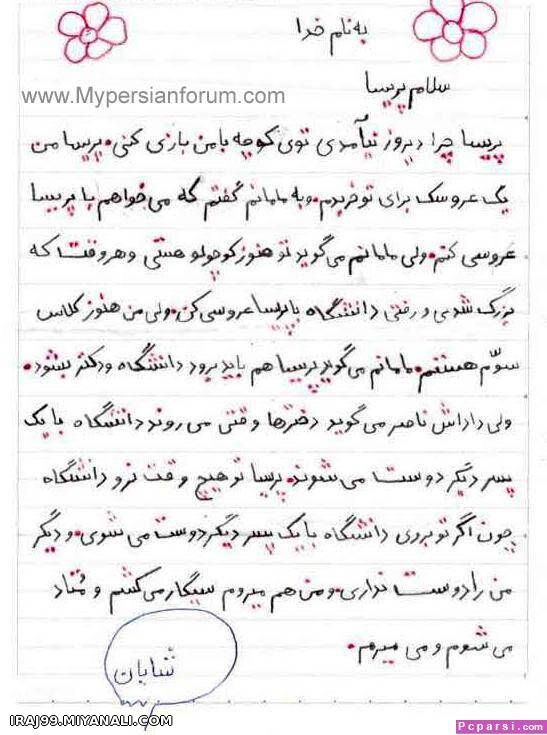 به نام خدا
سلام پریسا
www.Mypersianforum.com
پریسا چرا دیروز نیآمدی توی کوچه با من بازی کنی. پریسا من
یک عروسک برای تو خریدم. و به مامانم گفتم که می خواهم با پریسا
عروسی کنم. ولی مامانم می گوید تو هنوز کوچولو هستی و هر وقت که
بزرگ شدی و رفتی دانشگاه با پریسا عروسی کن. ولی من هنوز کلاس
سوّم هستم. مامانم می گوید پریسا هم باید برود دانشگاه و دکتر بشود.
ولی داداش ناصر می گوید دخترها وقتی می روند دانشگاه با یک
پسر دیگر دوست می شوند. پرسا تو هیچ وقت نرو دانشگاه
چون اگر تو بروی دانشگاه با یک پسر دیگر دوست می شوی. و دیگر
من را دوست نداری. و من هم میروم سیگار می کشم و مُتاد
می شوم و می میرم.
شایان
IRAJ99.MIYANALI.COM
Pcparsi.com